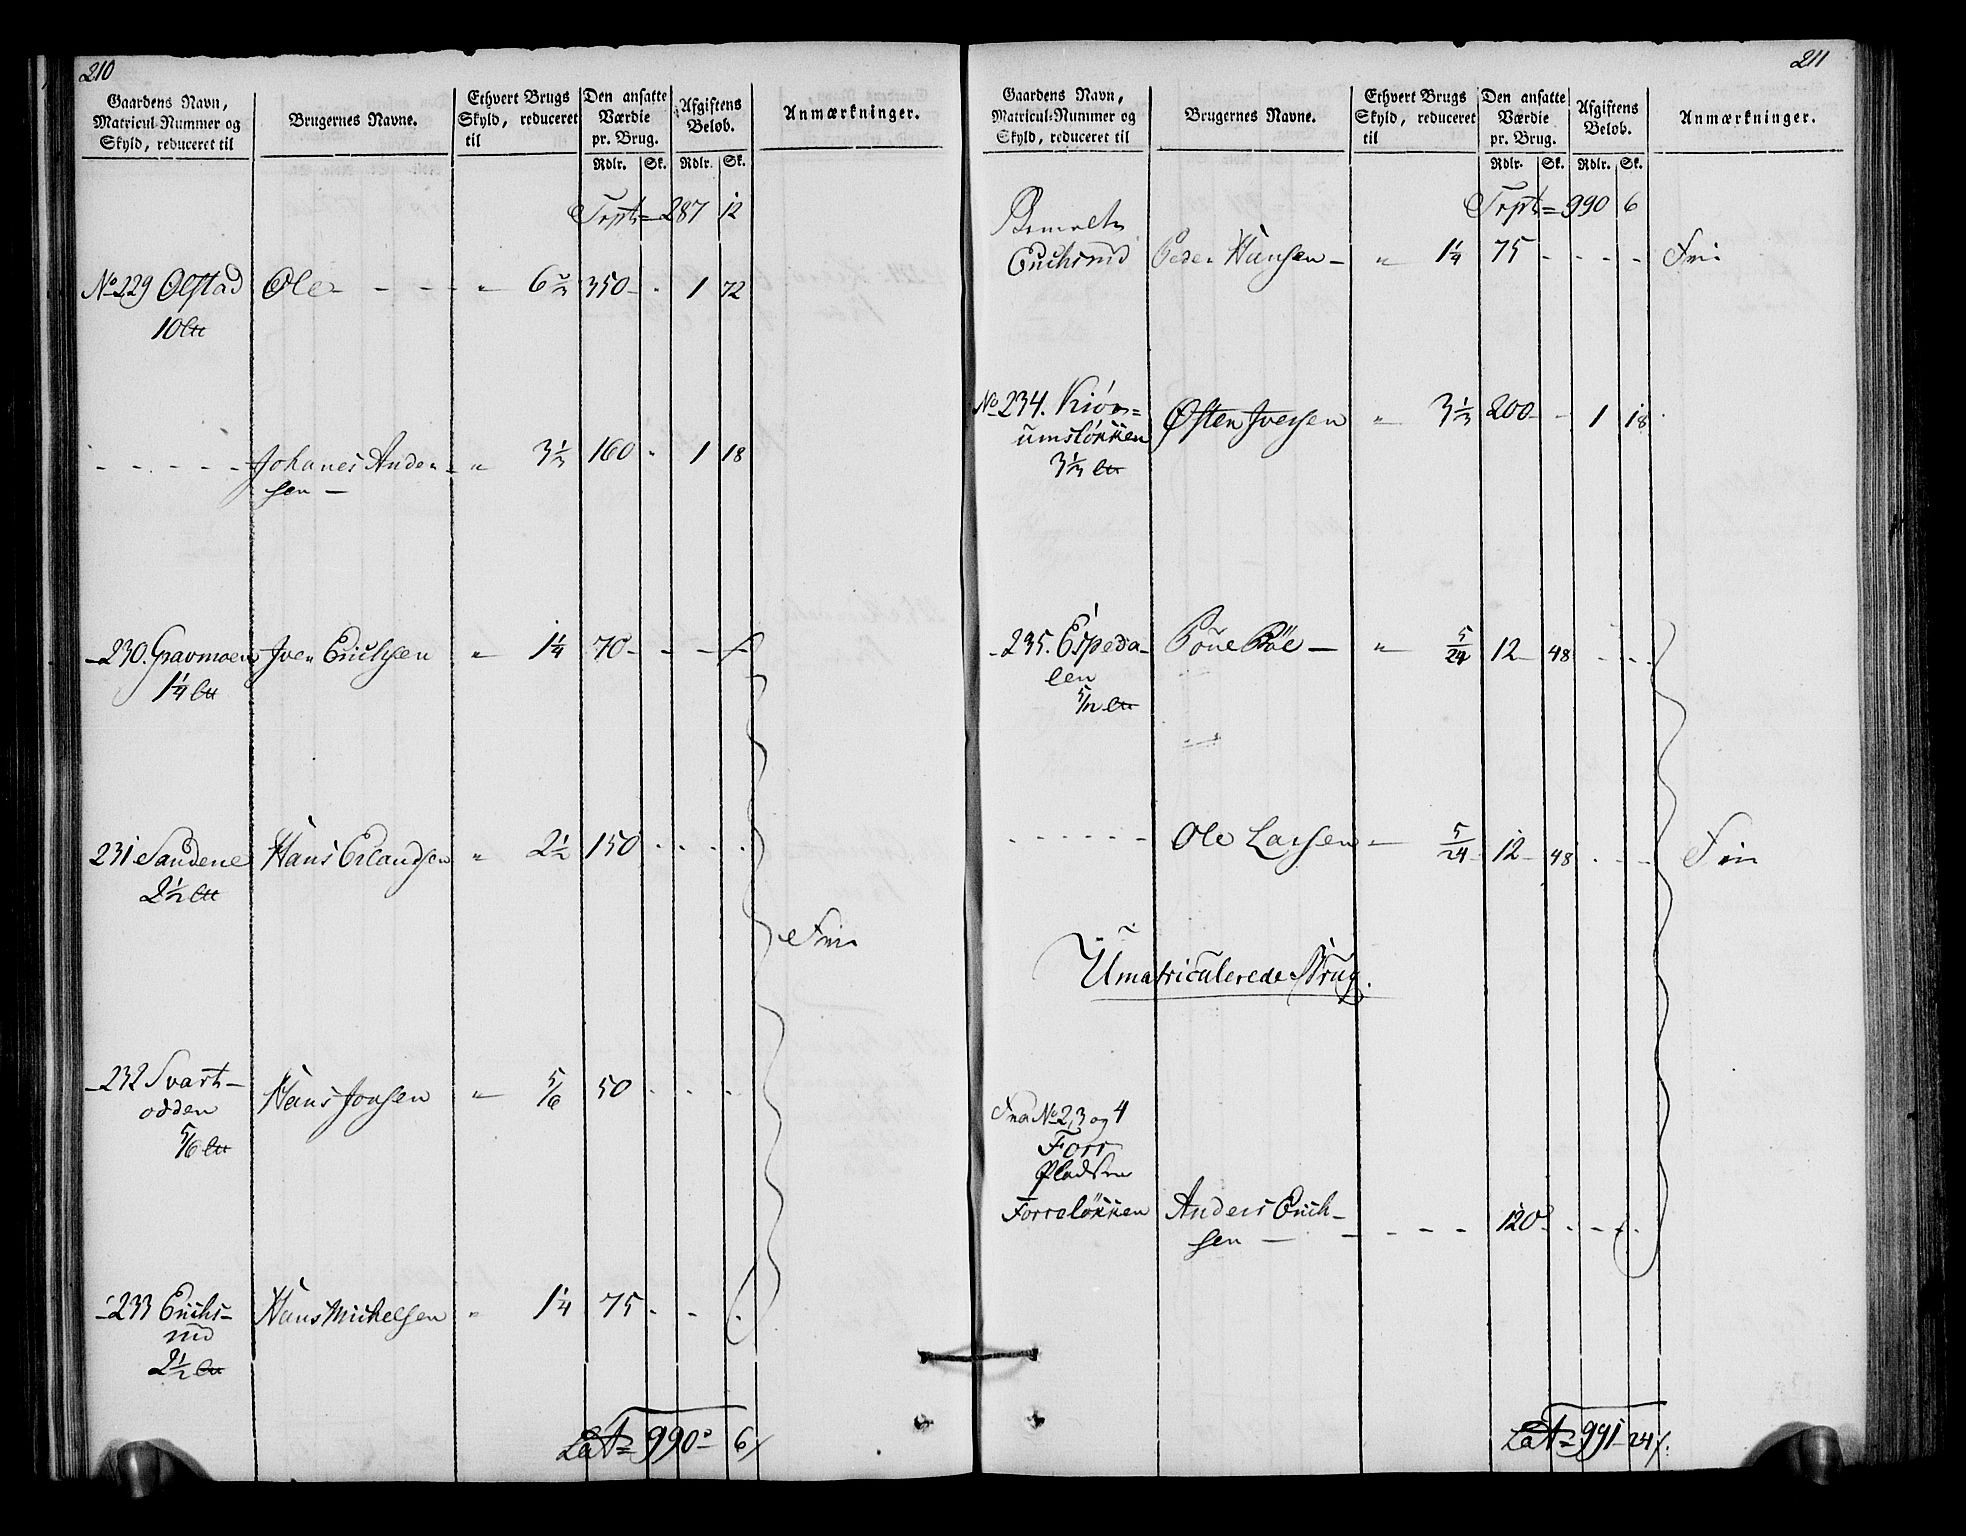 210
Gaardens Navn, Matricul-Nummer og Skyld, reduceret til | Brugernes Navne. | Ethvert Brugs Skyld, reduceret til | Den ansatte Værdie pr. Brug. | Afgiftens Beløb. | Anmærkninger.
Rdlr. | Sk. | Rdlr. | Sk.
Trpt = 287 12
No 229 Olstad Ole - - - - " 6 2/3 350 - - 1 72
10
- - - - - Johanes Ander- " 3 1/3 160 - 1 18
sen -
- 230. Gravmoen Iver Erichsen " 1 1/4 70 - - -
1 1/4
231 Sandene Hans Erlandsen " 2 1/2 150 - - - -
2 1/2
Fri
- 232 Svart- Hans Jonsen " 5/6 50 - - - -
odden
5/6
- 233 Erichs- Hans Michelsen " 1 1/4 75 - - -
rud
2 1/2
Lat = 990 - 6
211
Gaardens Navn, Matricul-Nummer og Skyld, reduceret til | Brugernes Navne. | Ethvert Brugs Skyld, reduceret til | Den ansatte Værdie pr. Brug. | Afgiftens Beløb. | Anmærkninger.
Rdlr. | Sk. | Rdlr. | Sk.
Trpt = 990 6
Bemelte
Erichsrud Peder Hansen - " 1 1/4 75 - - - - Fri
No 234. Kiøn=
umsløkken Østen Iversen " 3 1/3 200 - - 1 18
3 1/3
- 235. Espeda- Boe - " 5/24 12 - 48 - - -
len
5/12
- - - - - - Ole Larsen - 5/24 12 - 48 - - - Fri
Umatriculerede Brug.
Fra No 2, 3 og 4
Forr
Pladsen
Forreløkken Anders Erich-
sen - - - - - 120 - - - -
Lat = 991 - 24